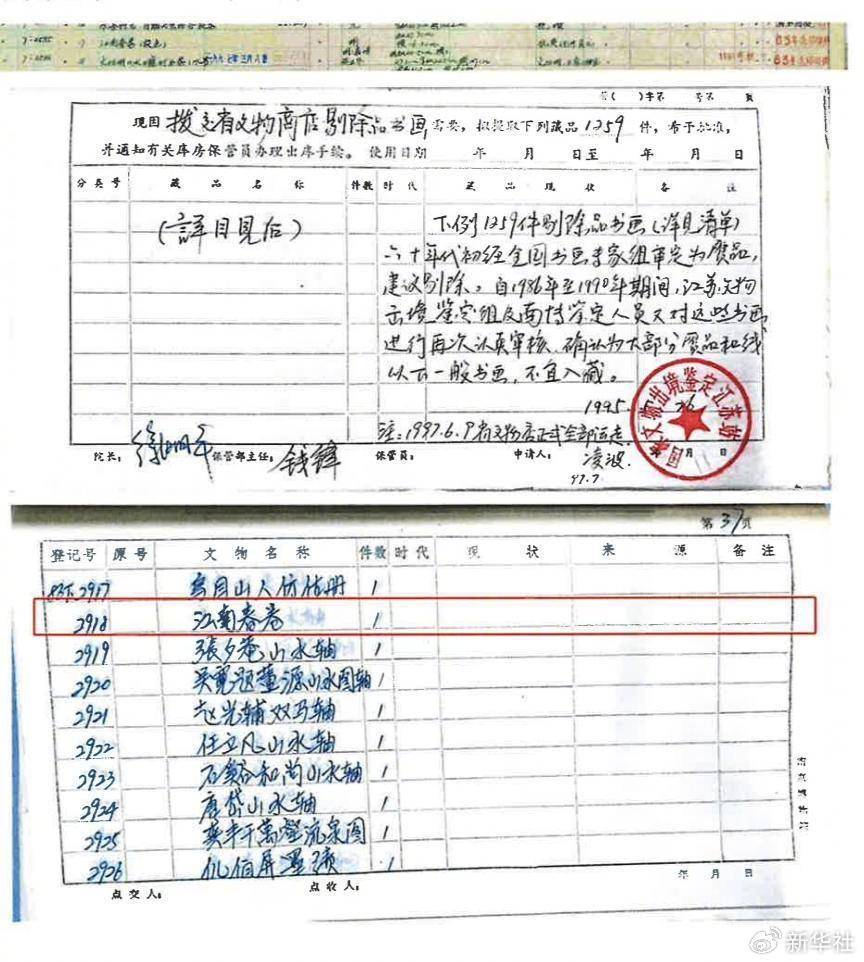 7:0595 江南春卷(设色)
第( )字第 号第 页
现因 拨交省文物商店剔除品书画 需要,拟提取下列藏品 1259 件,希予批准,
并通知有关库房保管员办理出库手续。 使用日期 年 月 日至 年 月 日
分类号 藏品名称 件数 时代 藏品现状 备注
(詳目見后)
下例1259件剔除品书画(详见清单)
六十年代初经全国书画专家组审定为赝品,
建议剔除。自1986年至1990年期间,江苏文物
出境鉴定组及南博鉴定人员又对这些书画
进行再次认真审核,确认为大部分赝品和线
以下一般书画,不宜入藏。
1995. 26
注:1997.6.9省文物店正式全部运走
年 月 日
院长: 徐湖平 保管部主任: 钱锋 保管员: 申请人: 凌波
97.7
国家文物出境鉴定江苏站
第37页
登记号 原号 文物名称 件数 时代 现状 来源 备注
2917 烏目山人仿古册 1
2918 江南春卷 1
2919 張夕庵山水轴 1
2920 吴寬题董源山水图轴 1
2921 赵光辅双马轴 1
2922 任立凡山水轴 1
2923 石谿和尚山水轴 1
2924 唐岱山水轴 1
2925 龚半千萬壑流泉图 1
2926 1
年 月 日
点交人: 点收人:
新华社